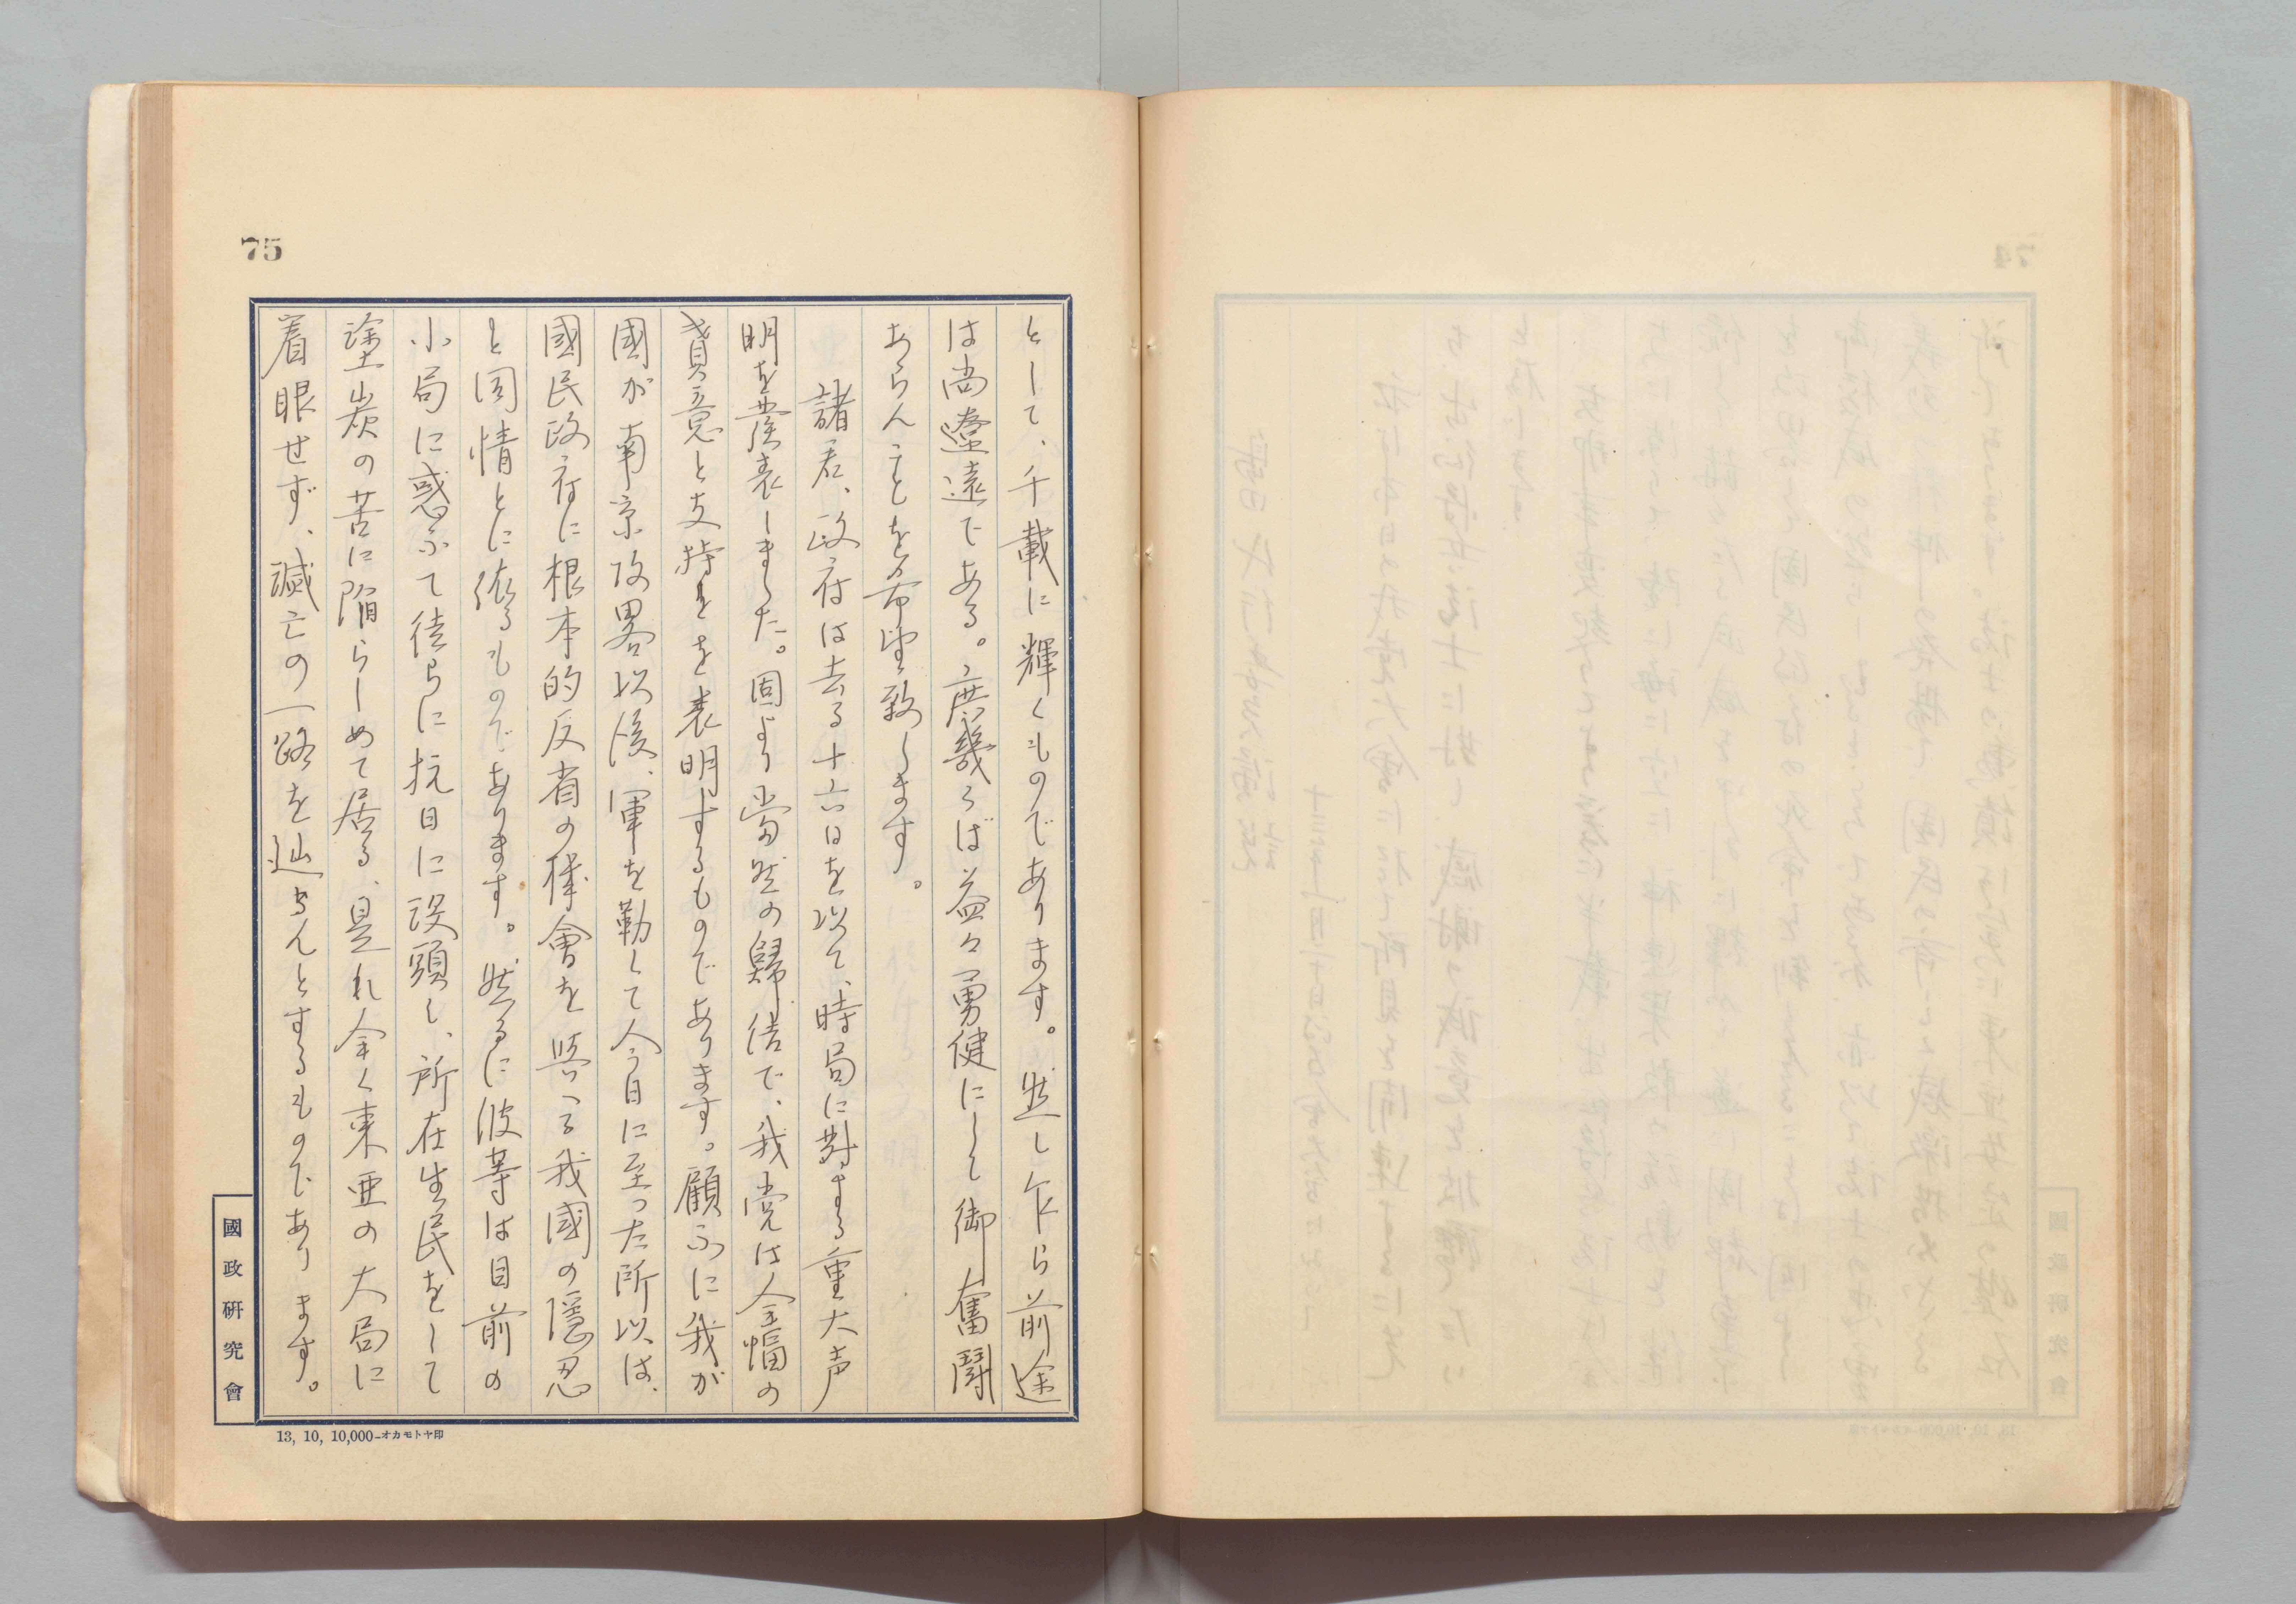 75
として、千載に輝くものであります。然し乍ら前途
は尚遼遠である。庶幾くば益々勇健にして御奮鬪
あらんことを希望致します。
諸君、政府は去る十六日を以て、時局に對する重大声
明を發表しました。固より當然の歸結で、我党は全幅の
賛意と支持とを表明するものであります。顧ふに我が
國が南京攻畧以後、軍を勒して今日に至った所以は、
國民政府に根本的反省の機會を與へる我國の隱忍
と同情とに依るものであります。然るに彼等は目前の
小局に惑ふて徒らに抗日に没頭し、所在生民をして
塗炭の苦に陥らしめて居る、是れ全く東亜の大局に
着眼せず、滅亡の一路を辿らんとするものであります。
國政研究會
13, 10, 10,000-オカモトヤ印